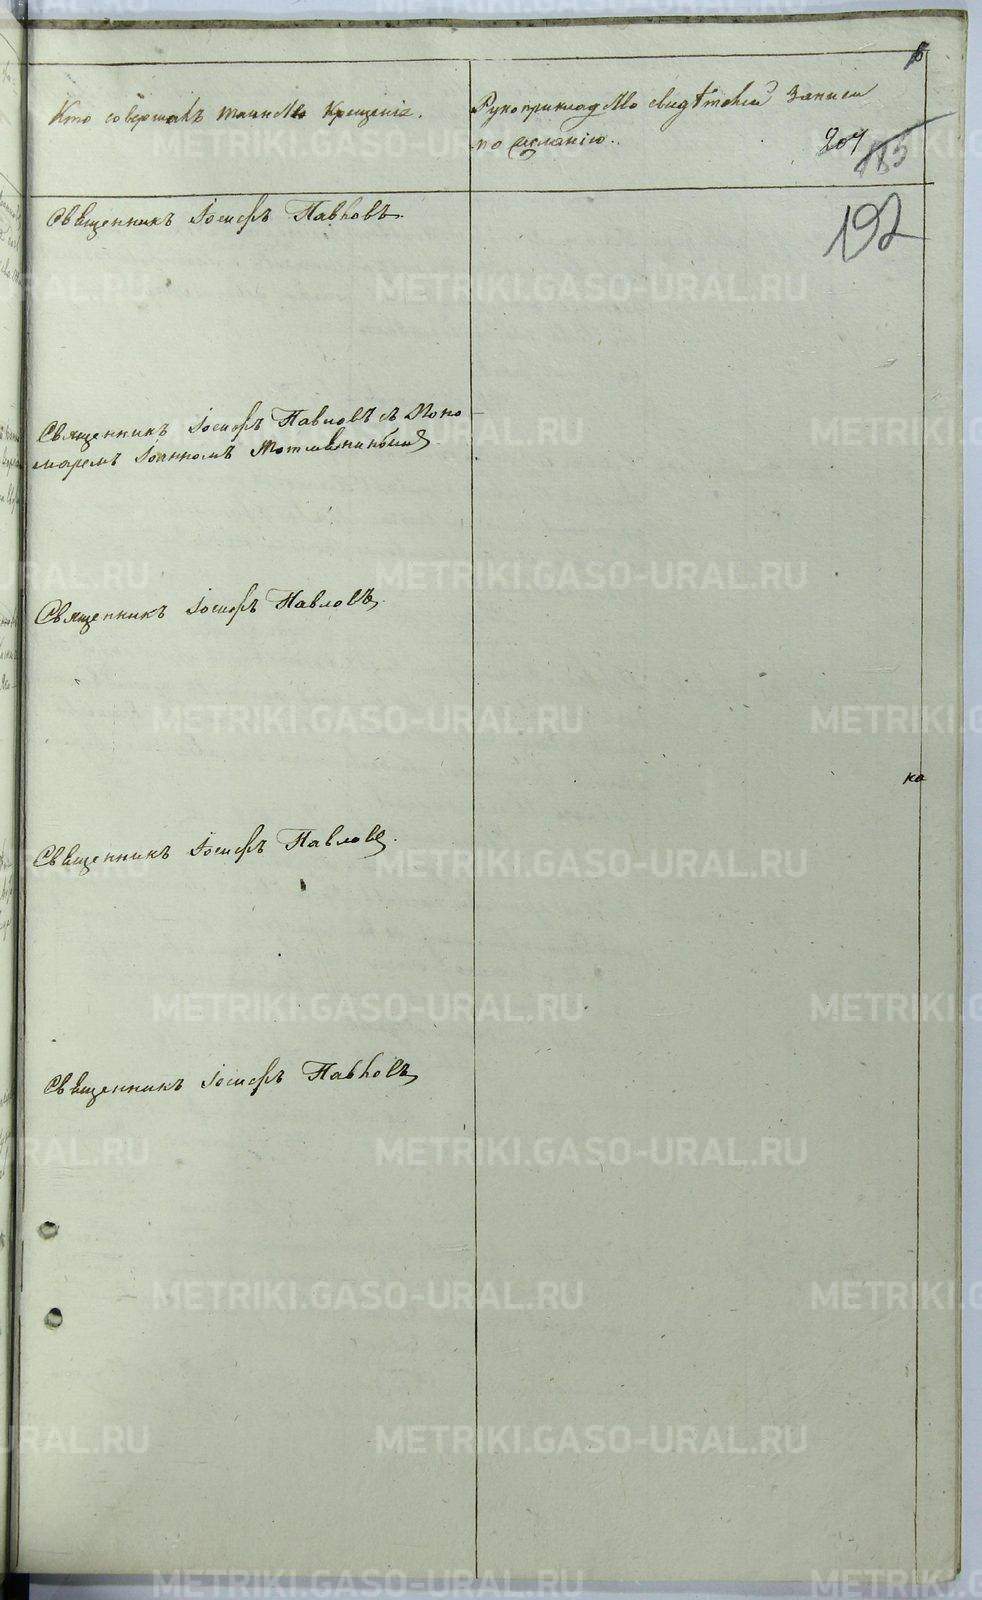 Кто совершалъ таинство Крещенія.
Рукоприкладство свидѣтелей записи
по желанію.
207
185
192
Священникъ Іосифъ Павловъ.
Священникъ Іосифъ Павловъ съ Поно-
маремъ Іоанномъ
Священникъ Іосифъ Павловъ.
ка
Священникъ Іосифъ Павловъ.
Священникъ Іосифъ Павловъ
METRIKI.GASO-URAL.RU